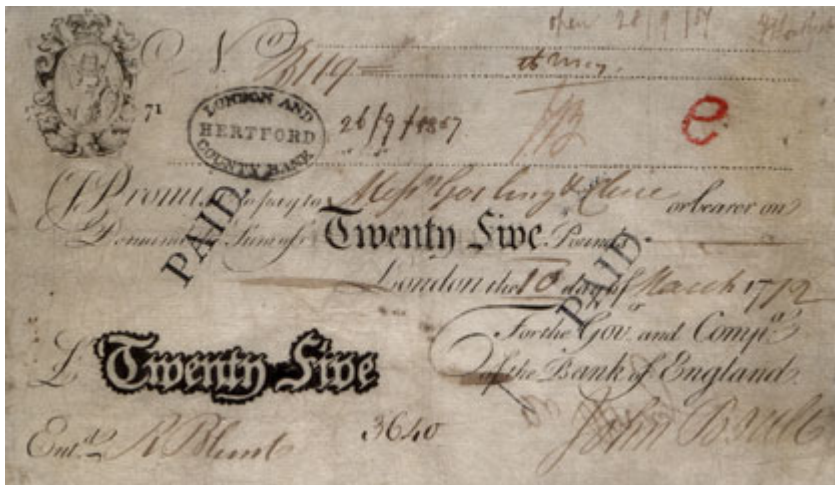 open 28/9/
No. 119
71
LONDON AND
HERTFORD
COUNTY BANK
26/9/1857
e
I Promise to pay to Mess.rs Gosling & Clive or bearer on
Demand the Sum of Twenty Five Pounds
PAID
PAID
London the 10 day of March 1772
For the Gov.r and Comp.a
of the Bank of England
£ Twenty Five
Ent.d R Blunt
3640
John Boult